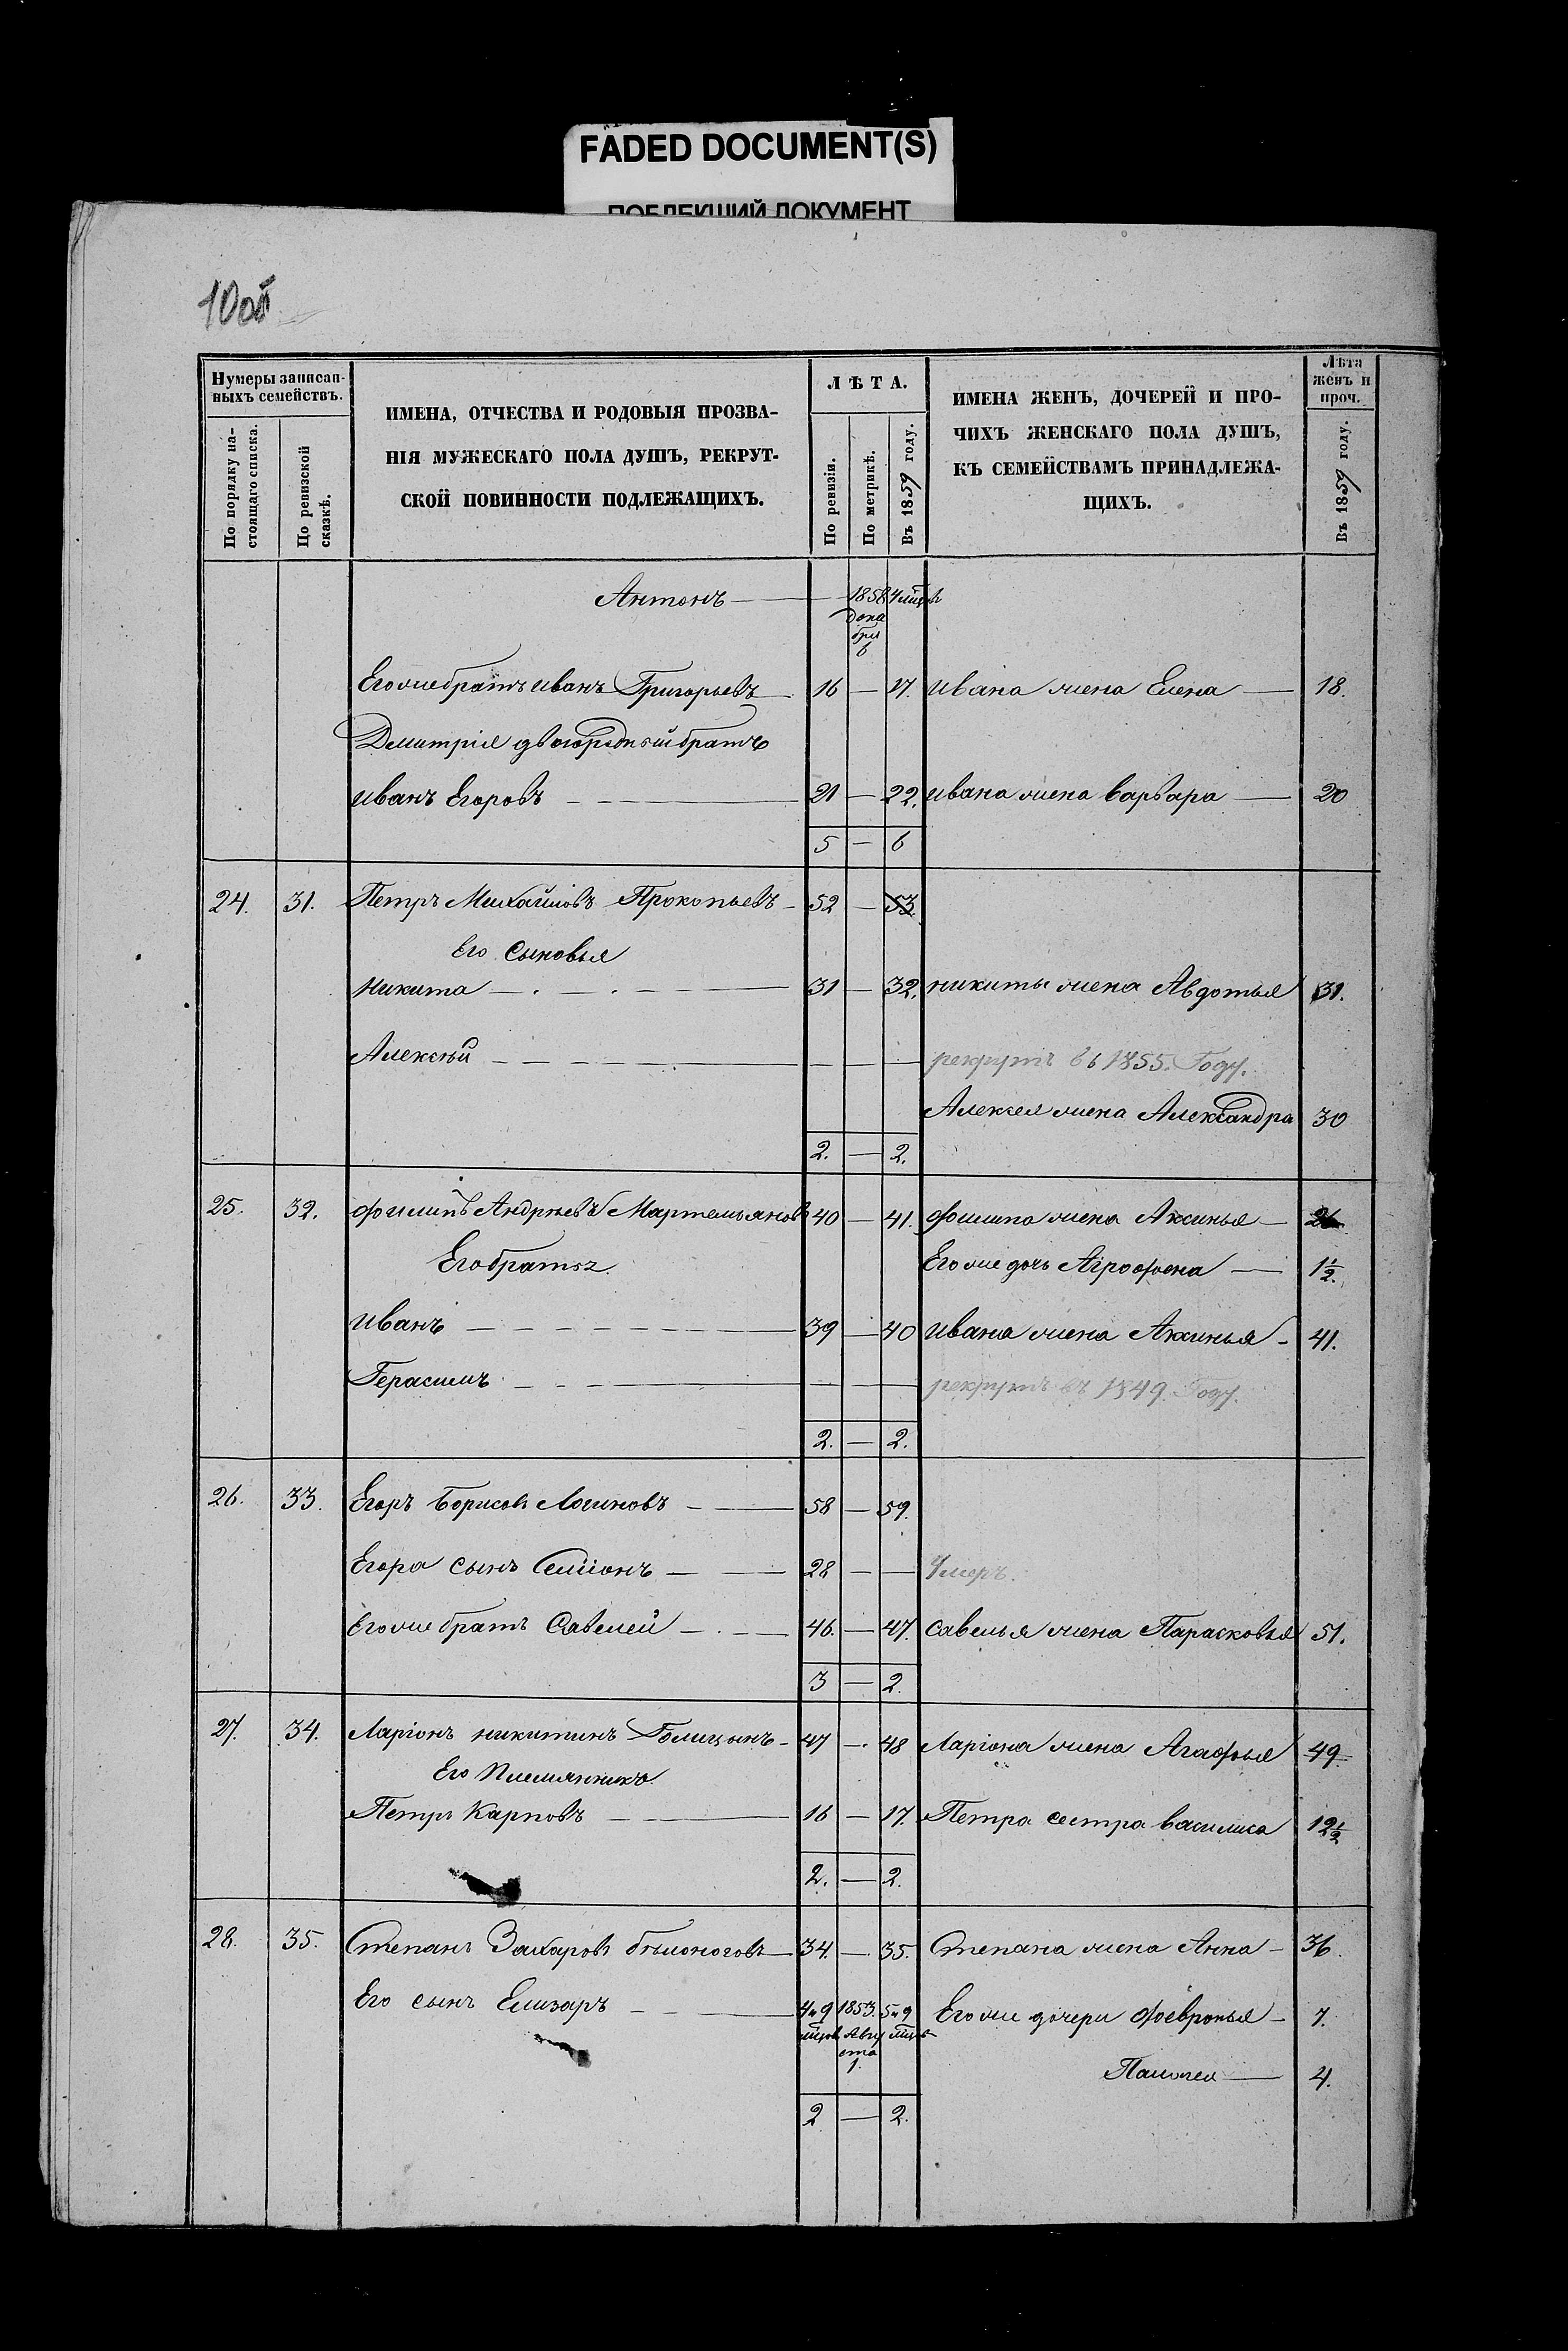 FADED DOCUMENT(S)
ПОБЛЕКШИЙ ДОКУМЕНТ
10об
Нумеры записан-
ныхъ семействъ.
По порядку на-
стоящаго списка.
По ревизской
сказкѣ.
ИМЕНА, ОТЧЕСТВА И РОДОВЫЯ ПРОЗВА-
НІЯ МУЖЕСКАГО ПОЛА ДУШЪ, РЕКРУТ-
СКОЙ ПОВИННОСТИ ПОДЛЕЖАЩИХЪ.
ЛѢТА.
По ревизіи.
По метрикѣ.
Въ 1859 году.
ИМЕНА ЖЕНЪ, ДОЧЕРЕЙ И ПРО-
ЧИХЪ ЖЕНСКАГО ПОЛА ДУШЪ,
КЪ СЕМЕЙСТВАМЪ ПРИНАДЛЕЖА-
ЩИХЪ.
Лѣта
женъ и
проч.
Въ 1859 году.
Антонъ — 1858
дека
бря
6
Его же братъ Иванъ Григорьевъ 16 — 17. Ивана жена Елена — 18.
Дмитрія двоюродный братъ
Иванъ Егоровъ — 21 — 22. Ивана жена Варвара — 20
5 — 6
24. 31. Петръ Михайловъ Прокопьевъ — 52 — 53
Его Сыновья
Никита — 31 — 32. Никиты жена Авдотья 31.
Алексѣй — — — рекрутъ въ 1855. Году.
Алексея жена Александра 30
2. — 2.
25. 32. Филипъ Андрѣевъ Мартемьяновъ 40 — 41. Филипа жена Аксинья — 26
Его братья Его же дочь Агрофена — 1½.
Иванъ — 39 — 40 Ивана жена Аксинья — 41.
Герасимъ — — — рекрутъ въ 1849. Году.
2. — 2.
26. 33. Егоръ Борисовъ Логиновъ — 58 — 59.
Егора сынъ Семіонъ — 28 — — Умеръ.
Его же братъ Савелей — 46. — 47. Савелья жена Парасковья 51.
3 — 2.
27. 34. Ларіонъ Никитинъ Голицынъ — 47 — 48 Ларіона жена Агафья 49.
Его Племянникъ
Петръ Карповъ — 16 — 17. Петра сестра Василиса 12½
2. — 2.
28. 35. Степанъ Захаровъ Бѣлоноговъ — 34. — 35. Степана жена Анна — 36.
Его сынъ Елизаръ — 4 и 9 1853. 5 и 9 Его же дочери Февронья — 7.
мцов Авгу мцов
ста
1.
4.
2 — 2.